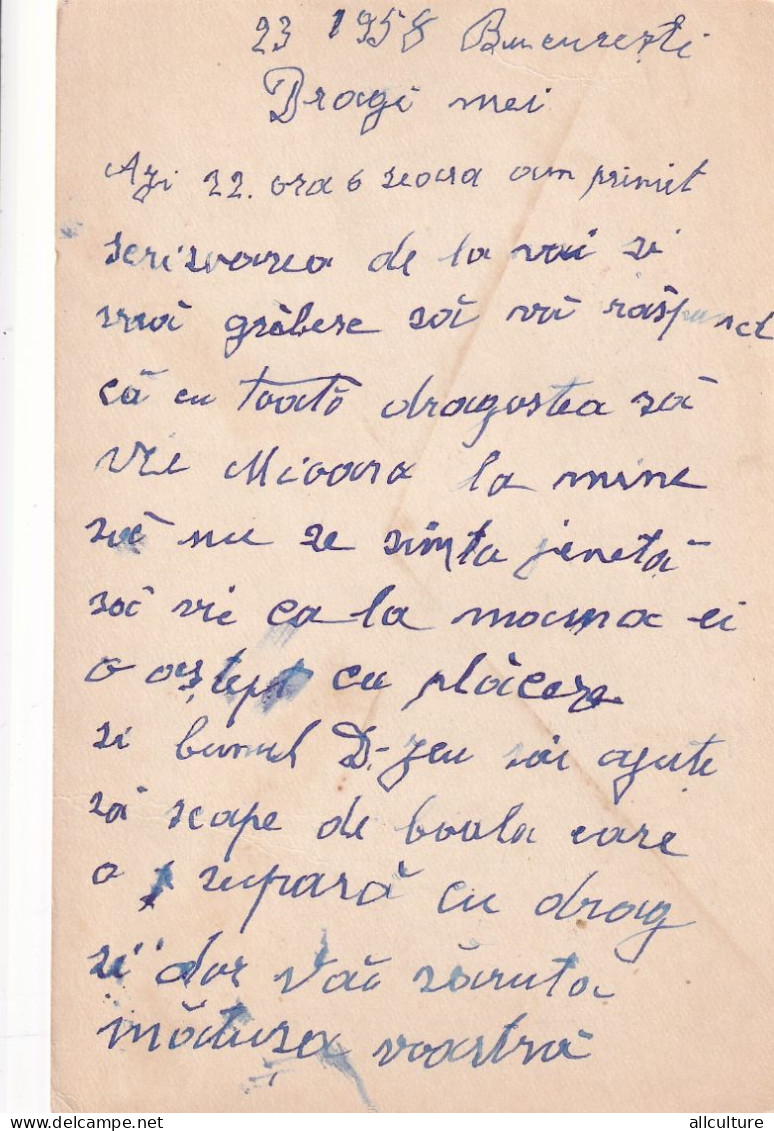 23 1958 București
Dragi mei
Azi 22. ora 6 seara am primit
scrisoarea de la voi si
mă grăbesc să vă răspunct
că cu toată dragostea să
vie Mioara la mine
să nu se simta jenetă
să vie ca la mama ei
o aștept cu plăcere
si bunul D-zeu săi ajute
să scape de boala care
o supară cu drag
si dor Văă săruta
mătusa voastră
allculture